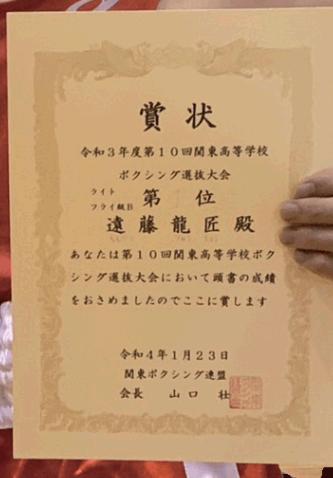 賞状
令和3年度第10回関東高等学校
ボクシング選抜大会
ライト
フライ級B
第1位
遠藤龍匠殿
あなたは第10回関東高等学校ボク
シング選抜大会において頭書の成績
をおさめましたのでここに賞します
令和4年1月23日
関東ボクシング連盟
会長 山口 壮